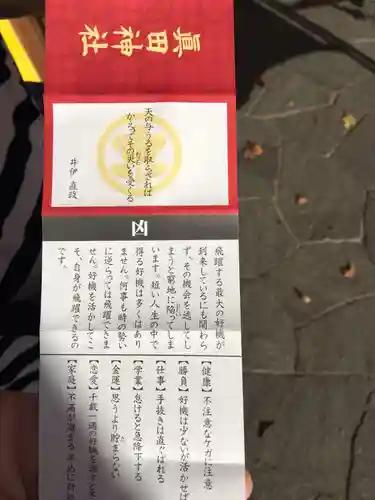 眞田神社
天の与うるを取らざれば
かえってその災いを受くる
井伊 直政
凶
飛躍する最大の好機が
到来しているにも関わら
ず、その機会を逃してし
まうと窮地に陥ってしま
います。短い人生の中で
得る好機は多くはあり
ません。何事も時の勢い
に逆らっては飛躍できま
せん。好機を活かしてこ
そ、自身が飛躍できるの
です。
【健康】不注意なケガに注意
【勝負】好機は少ないが活かせば
【仕事】手抜きは直ぐばれる
【学業】怠けると急降下する
【金運】思うより貯まらない
【恋愛】千載一遇の好機を逃すと
【家庭】不満が溜まる